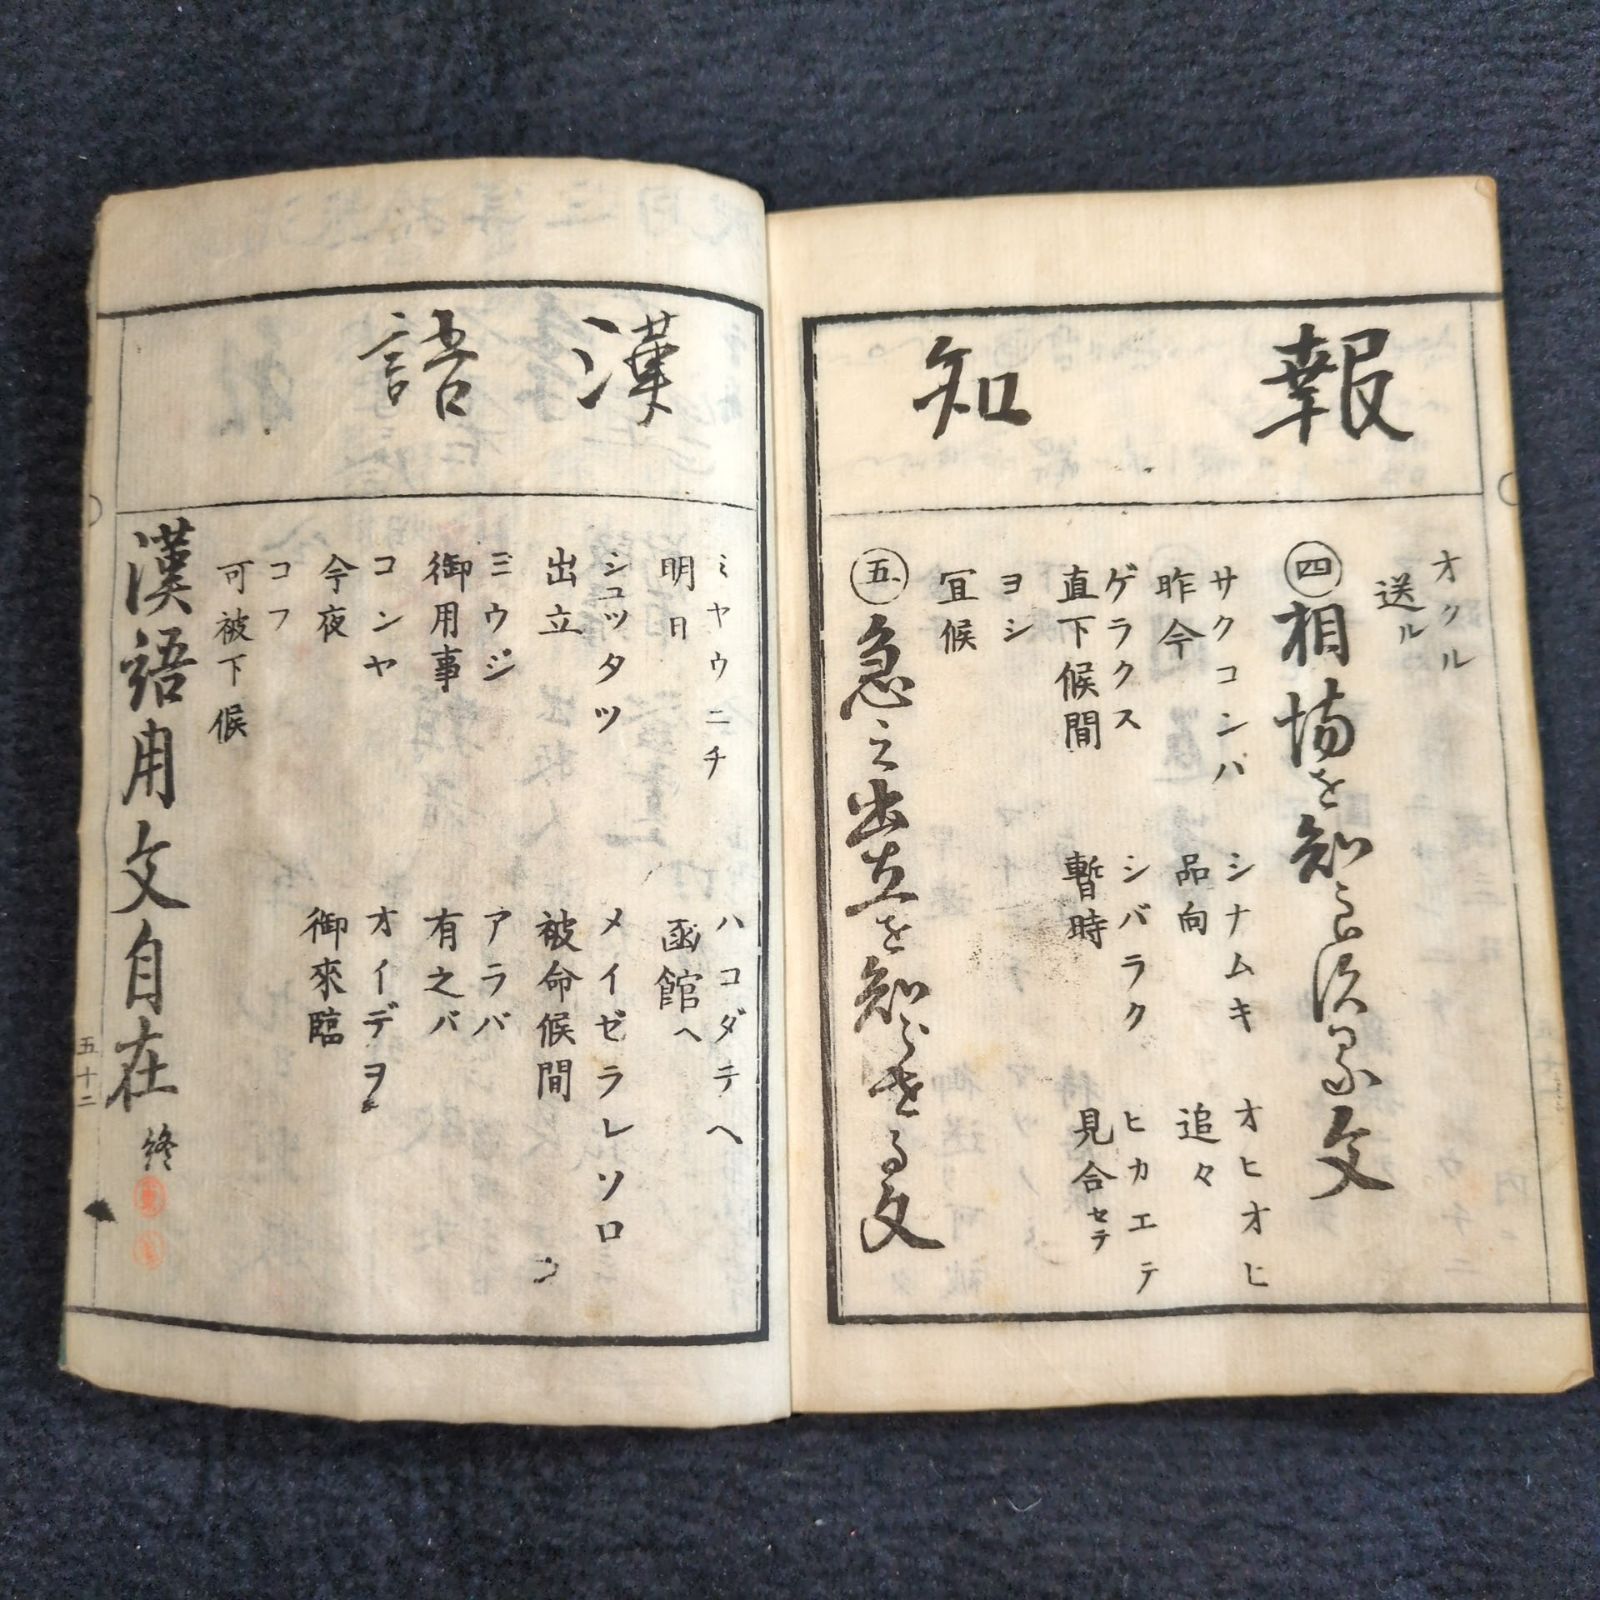 報知
オクル
送ル
㊃相場を知らする文
サクコンハ シナムキ オヒオヒ
昨今 品向 追々
ゲラクス シバラク ヒカエテ
直下候間 暫時 見合セテ
ヨシ
冝候
㊄急之出立を知らせる文
漢語
ミヤウニチ ハコダテヘ
明日 函館ヘ
シユツタツ メイゼラレソロ
出立 被命候間
ミウジ アラバ
御用事 有之バ
コンヤ オイデヲ
今夜 御來臨
コフ
可被下候
漢語用文自在 終
五十二